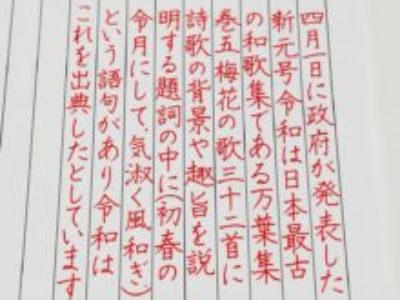 四月一日に政府が発表した
新元号令和は日本最古
の和歌集である万葉集
巻五梅花の歌三十二首に
詩歌の背景や趣旨を説
明する題詞の中に(初春の
令月にして、気淑く風和ぎ)
という語句があり令和は
これを出典したとしています